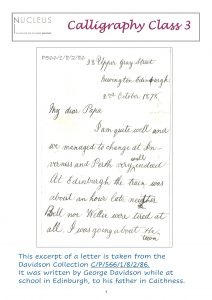 NUCLEUS
Calligraphy Class 3
P566/1/8/2/86
33 Upper Gray Street
Newington Edinburgh
2nd October 1878
My dear Papa
I am quite well and
we managed to change at In-
verness and Perth very well indeed
At Edinburgh the train was
about an hour late neither
Bell nor Willie were tired at
all. I was going about the
town
This excerpt of a letter is taken from the
Davidson Collection C/P/566/1/8/2/86.
It was written by George Davidson while at
school in Edinburgh, to his father in Caithness.